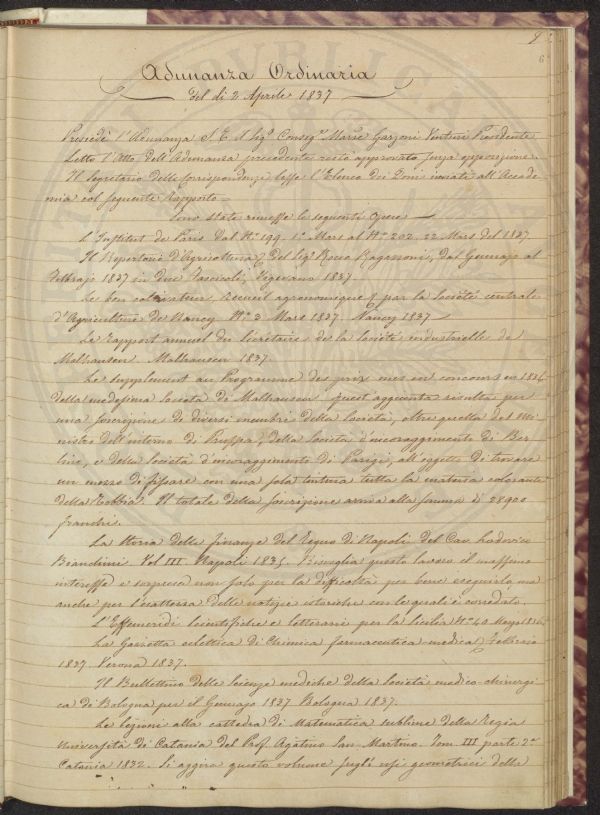 Adunanza Ordinaria
del dì 2 Aprile 1837
Presiede l'Adunanza S. E. il Sigr. Consigre. Marse. Garzoni Venturi Presidente
Letto l'Atto dell'Adunanza precedente restò approvato senza opposizione.
Il Segretario delle Corrispondenze lesse l'Elenco dei Doni inviati all'Accade-
mia col seguente Rapporto =
Sono state rimesse le seguenti Opere
L'Institut de Paris dal No. 199. 1o. Mars al No. 202. 22 Mars del 1837
Il Repertorio d'Agricoltura del Sigr. Rocco Ragazzoni, dal Gennajo al
Febbrajo 1837 in due Fascicoli, Vigevano 1837.
Le bon cultivateur, recueil agronomique par la Société centrale
d'Agriculture de Nancy No. 3 Mars 1837. Nancy 1837
Le Rapport annuel du Sécrétaire de la Société industrielle de
Malhausen. Malhauseur 1837.
Le Supplement au Programme des prix mis en concours en 1836
della medesima Società di Malhauseur quest'aggiunta risulta per
una soscrizione di diversi membri della Società, oltre quella del Mi-
nistro dell'interno di Prussia, della Società d'incoraggimento di Ber-
lino, e della Società d'incoraggimento di Parigi, all'oggetto di trovare
un mezzo di fissare con una sola tintura tutta la materia colorante
della Robbia. Il totale della soscrizione arriva alla somma di 28900
franchi.
La Storia delle finanze del Regno di Napoli del Cav. Lodovico
Bianchini Vol III. Napoli 1835. Risveglia questo lavoro il massimo
interesse e sorpresa non solo per la difficoltà per bene eseguirlo, ma
anche per l'esattezza delle notizie istoriche con le quali è corredato.
L'Effemeridi Scientifiche e letterarie per la Sicilia No. 40 Maggo 1836.
La Gazzetta eclettica di Chimica farmaceutica-medica Febbrajo
1837. Verona 1837.
Il Bullettino delle Scienze mediche della Società medico-chirurgi
ca di Bologna per il Gennajo 1837. Bologna 1837.
Le lezioni alla cattedra di Matematica sublime della Regia
Università di Catania del Prof. Agatino San Martino. Tom. III parte 2a
Catania 1832. Si aggira questo volume sugli usi geometrici della